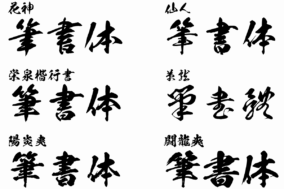 花神
筆書体
仙人
筆書体
栄泉楷行書
筆書体
英椎
筆書體
陽炎爽
筆書体
闘龍爽
筆書体